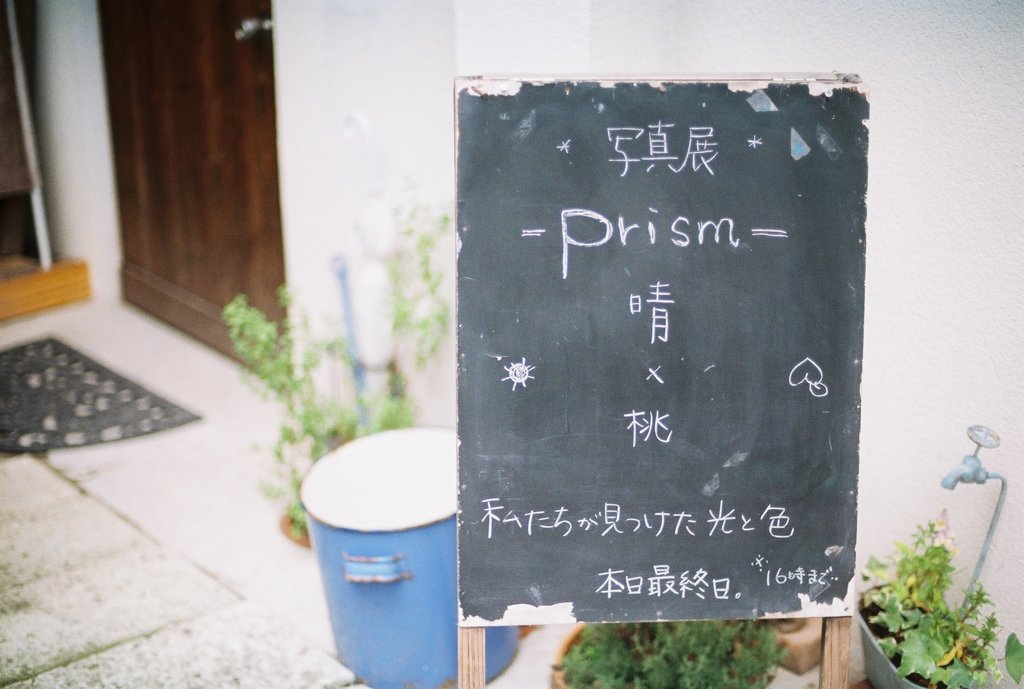 * 写真展 *
-prism-
晴
×
桃
私たちが見つけた光と色
本日最終日。 ※16時まで…